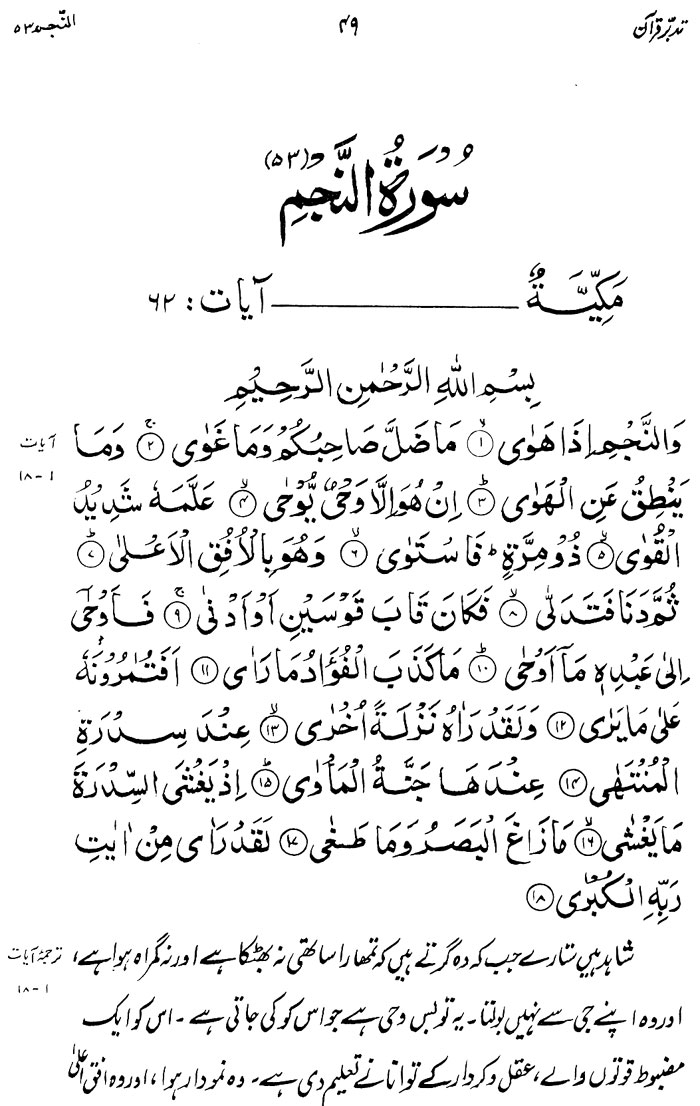 تدبّرِ قرآن ۴۹ النّجم ۵۳
سُوْرَةُ النَّجْمِ (۵۳)
مَكِّيَّةٌ ـــــــــ آیات : ۶۲
بِسْمِ اللهِ الرَّحْمٰنِ الرَّحِيْمِ
وَالنَّجْمِ اِذَا هَوٰى ۱ مَا ضَلَّ صَاحِبُكُمْ وَمَا غَوٰى ۲ وَمَا
آیات
۱-۱۸
يَنْطِقُ عَنِ الْهَوٰى ۳ اِنْ هُوَ اِلَّا وَحْيٌ يُّوْحٰى ۴ عَلَّمَهٗ شَدِيْدُ
الْقُوٰى ۵ ذُوْ مِرَّةٍ ؕ فَاسْتَوٰى ۶ وَهُوَ بِالْاُفُقِ الْاَعْلٰى ۷
ثُمَّ دَنَا فَتَدَلّٰى ۸ فَكَانَ قَابَ قَوْسَيْنِ اَوْ اَدْنٰى ۹ فَاَوْحٰٓى
اِلٰى عَبْدِهٖ مَآ اَوْحٰى ۱۰ مَا كَذَبَ الْفُؤَادُ مَا رَاٰى ۱۱ اَفَتُمٰرُوْنَهٗ
عَلٰى مَا يَرٰى ۱۲ وَلَقَدْ رَاٰهُ نَزْلَةً اُخْرٰى ۱۳ عِنْدَ سِدْرَةِ
الْمُنْتَهٰى ۱۴ عِنْدَهَا جَنَّةُ الْمَاْوٰى ۱۵ اِذْ يَغْشَى السِّدْرَةَ
مَا يَغْشٰى ۱۶ مَا زَاغَ الْبَصَرُ وَمَا طَغٰى ۱۷ لَقَدْ رَاٰى مِنْ اٰيٰتِ
رَبِّهِ الْكُبْرٰى ۱۸
شاہد ہیں ستارے جب کہ وہ گرتے ہیں کہ تمھارا ساتھی نہ بھٹکا ہے اور نہ گمراہ ہوا ہے،
ترجمۂ آیات
۱-۱۸
اور وہ اپنے جی سے نہیں بولتا۔ یہ تو بس وحی ہے جو اس کو کی جاتی ہے۔ اس کو ایک
مضبوط قوتوں والے، عقل و کردار کے توانا نے تعلیم دی ہے۔ وہ نمودار ہوا، اور وہ افق اعلیٰ